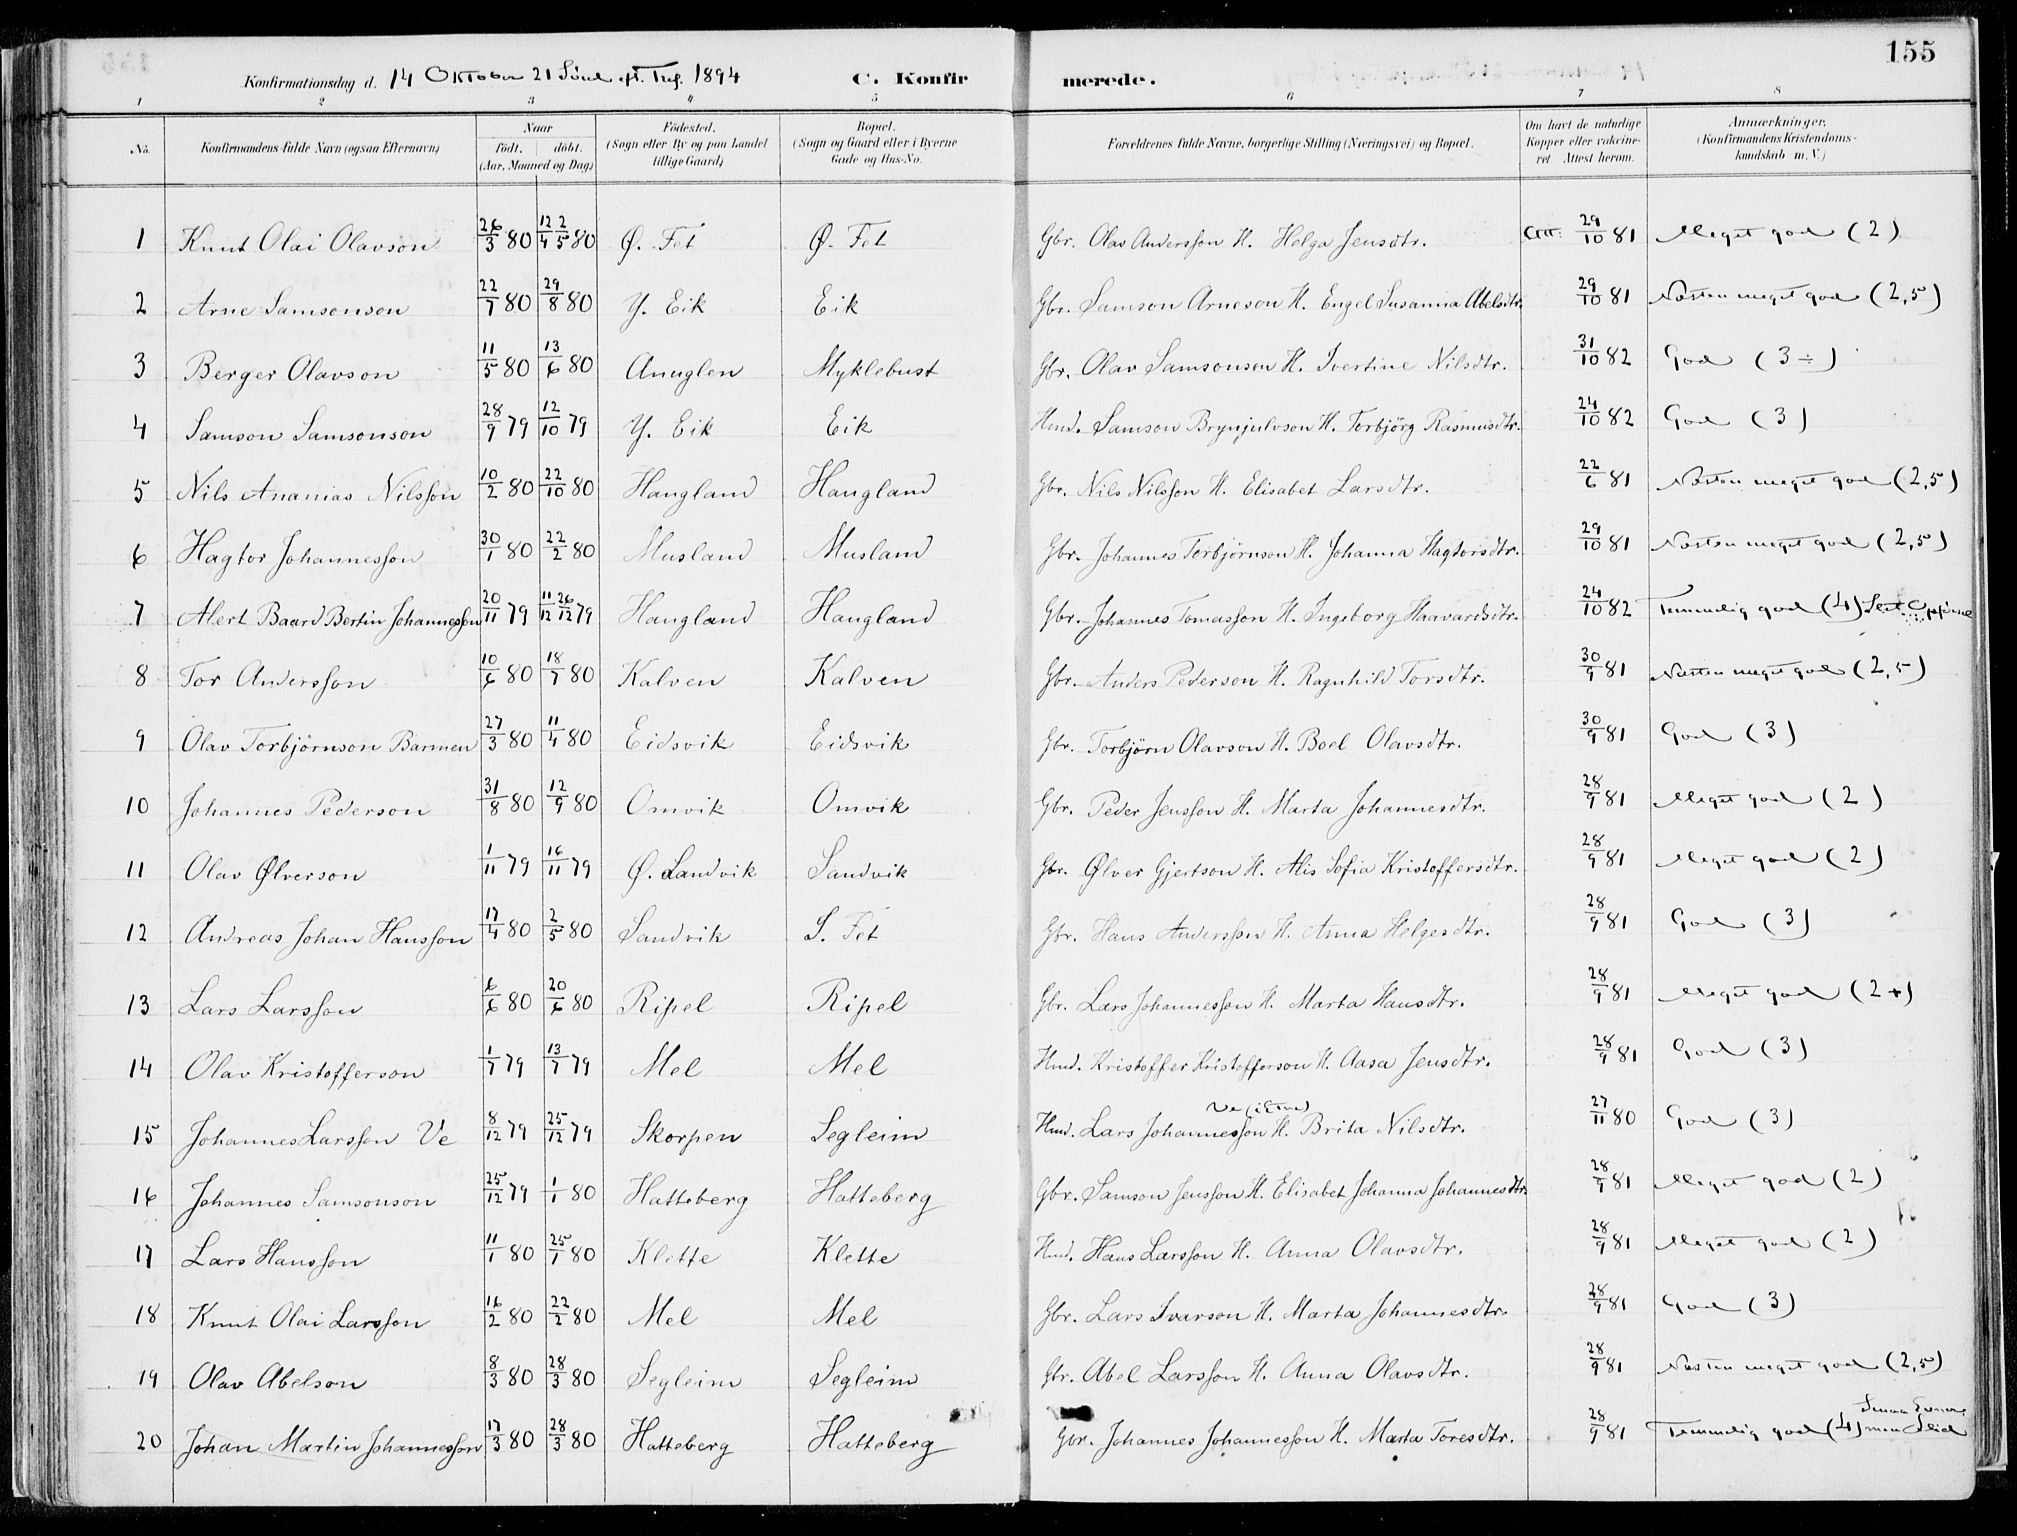 155
Konfirmationsdag d. 14 Oktober 21 Sönd. eft. Tref. 1894 C. Konfirmerede.
1 2 3 4 5 6 7 8
No. Konfirmandens fulde Navn (ogsaa Efternavn) Naar födt. döbt. (Aar, Maaned og Dag) Födested. (Sogn eller By og paa Landet tillige Gaard) Bopæl. (Sogn og Gaard eller i Byerne Gade og Hus-No. Forældrenes fulde Navne, borgerlige Stilling (Næringsvei) og Bopæl. Om havt de naturlige Kopper eller vakcineret. Attest herom. Anmærkninger. (Konfirmandens Kristendomskundskab m. V.)
1 Knut Olai Olavson 26/3 80 12/4 2/5 80 Ø. Fet Ø. Fet Gbr. Olav Andersson H. Helga Jensdtr. Att: 29/10 81 Meget god (2)
2 Arne Samsonson 22/7 80 29/8 80 Y. Eik Eik Gbr. Samson Arneson H. Engel Susanna Abelsdtr. 29/10 81 Næsten meget god (2,5)
3 Berger Olavson 11/5 80 13/6 80 Anuglen Myklebust Gbr. Olav Samsonson H. Ivertine Nilsdtr. 31/10 82 God (3÷)
4 Samson Samsonson 28/9 79 12/10 79 Y. Eik Eik Hmd. Samson Brynjulvson H. Torbjörg Rasmusdtr. 24/10 82 God (3)
5 Nils Ananias Nilsson 10/2 80 22/10 80 Haugland Haugland Gbr. Nils Nilsson H. Elisabet Larsdtr. 22/6 81 Næsten meget god (2,5)
6 Hagtor Johannesson 30/1 80 22/2 80 Musland Musland Gbr. Johannes Torbjörnson H. Johanna Hagtorsdtr. 29/10 81 Næsten meget god (2,5)
7 Alert Baard Bertin Johannesson 20/11 79 11/12 26/12 79 Haugland Haugland Gbr. Johannes Tomasson H. Ingeborg Haavardsdtr. 24/10 82 Temmelig god (4)
8 Tor Andersson 10/6 80 18/7 80 Kalven Kalven Gbr. Anders Pederson H. Ragnhild Torsdtr. 30/9 81 Næsten meget god (2,5)
9 Olav Torbjörnson Barmen 27/3 80 11/4 80 Eidsvik Eidsvik Gbr. Torbjörn Olavson H. Boel Olavsdtr. 30/9 81 God (3)
10 Johannes Pederson 31/8 80 12/9 80 Omvik Omvik Gbr. Peder Jensson H. Marta Johannesdtr. 28/9 81 Meget god (2)
11 Olav Ølverson 1/11 79 16/11 79 Ø. Sandvik Sandvik Gbr. Ølver Gjertson H. Alis Sofia Kristoffersdtr. 28/9 81 Meget god (2)
12 Andreas Johan Hansson 17/4 80 2/5 80 Sandvik S. Fet Gbr. Hans Andersson H. Anna Helgesdtr. 28/9 81 God (3)
13 Lars Larsson 6/6 80 20/6 80 Ripel Ripel Gbr. Lars Johannesson H. Marta Hansdtr. 28/9 81 Meget god (2+)
14 Olav Kristofferson 1/7 79 13/7 79 Mel Mel Hmd. Kristoffer Kristofferson H. Aasa Jensdtr. 28/9 81 God (3)
15 Johannes Larsson Ve 8/12 79 25/12 79 Skorpen Segleim Hmd. Lars Johannesson Ve H. Brita Nilsdtr. 27/11 80 God (3)
16 Johannes Samsonson 25/12 79 1/1 80 Hatteberg Hatteberg Gbr. Samson Jensson H. Elisabet Johanna Johannesdtr. 28/9 81 Meget god (2)
17 Lars Hansson 11/1 80 25/1 80 Klette Klette Hmd. Hans Larsson H. Anna Olavsdtr. 28/9 81 Meget god (2)
18 Knut Olai Larsson 16/2 80 22/2 80 Mel Mel Gbr. Lars Ivarson H. Marta Johannesdtr. 28/9 81 God (3)
19 Olav Abelson 8/3 80 28/3 80 Segleim Segleim Gbr. Abel Larsson H. Anna Olavsdtr. 28/9 81 Næsten meget god (2,5)
20 Johan Martin Johannesson 17/3 80 28/3 80 Hatteberg Hatteberg Gbr. Johannes Johannesson H. Marta Toresdtr. 28/9 81 Temmelig god (4) Smaa Evner men flid